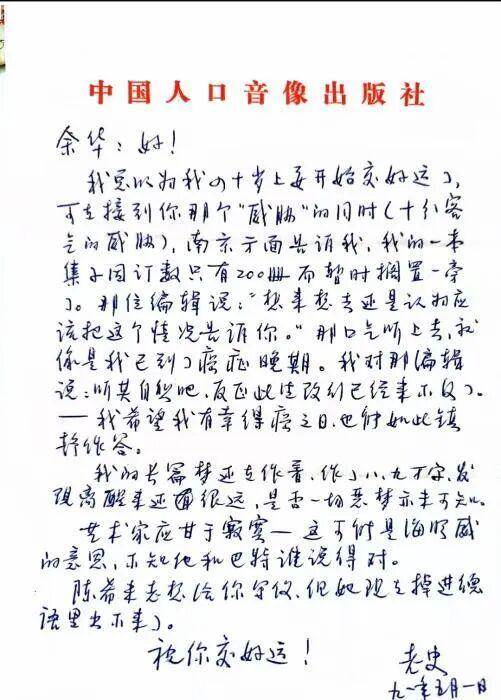 中国人口音像出版社
余华：好！
我总以为我四十岁上要开始交好运了，
可在接到你那个“威胁”的同时（十分客
气的威胁），南京方面告诉我，我的一本
集子因订数只有200册而暂时搁置一旁
了。那位编辑说：“想来想去还是认为应
该把这个情况告诉你。”那口气听上去，就
像是我已到了癌症晚期。我对那编辑
说：听其自然吧，反正此生改行已经来不及了。
——我希望我有幸得癌之日，也能如此镇
静作答。
我的长篇梦还在作着，作了八、九万字，发
现离醒来还很远，是否一场恶梦亦未可知。
艺术家应甘于寂寞——这可能是海明威
的意思，不知他和巴特谁说得对。
陈希米老想给你写信，但她现在掉进德
语里出不来了。
祝你交好运！
老史
九一年五月一日